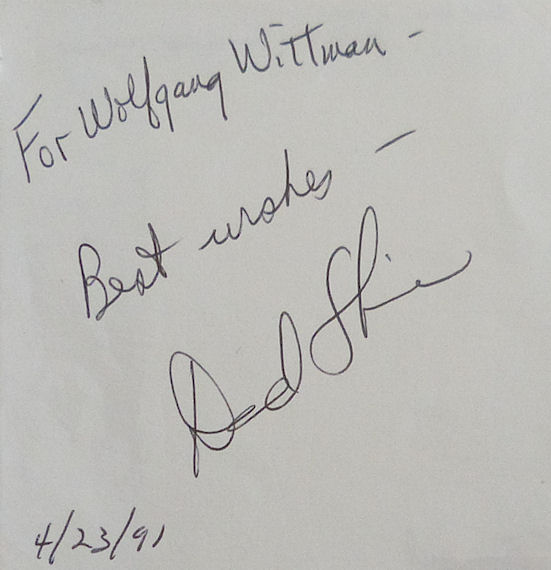 For Wolfgang Wittman -
Best wishes -
4/23/91